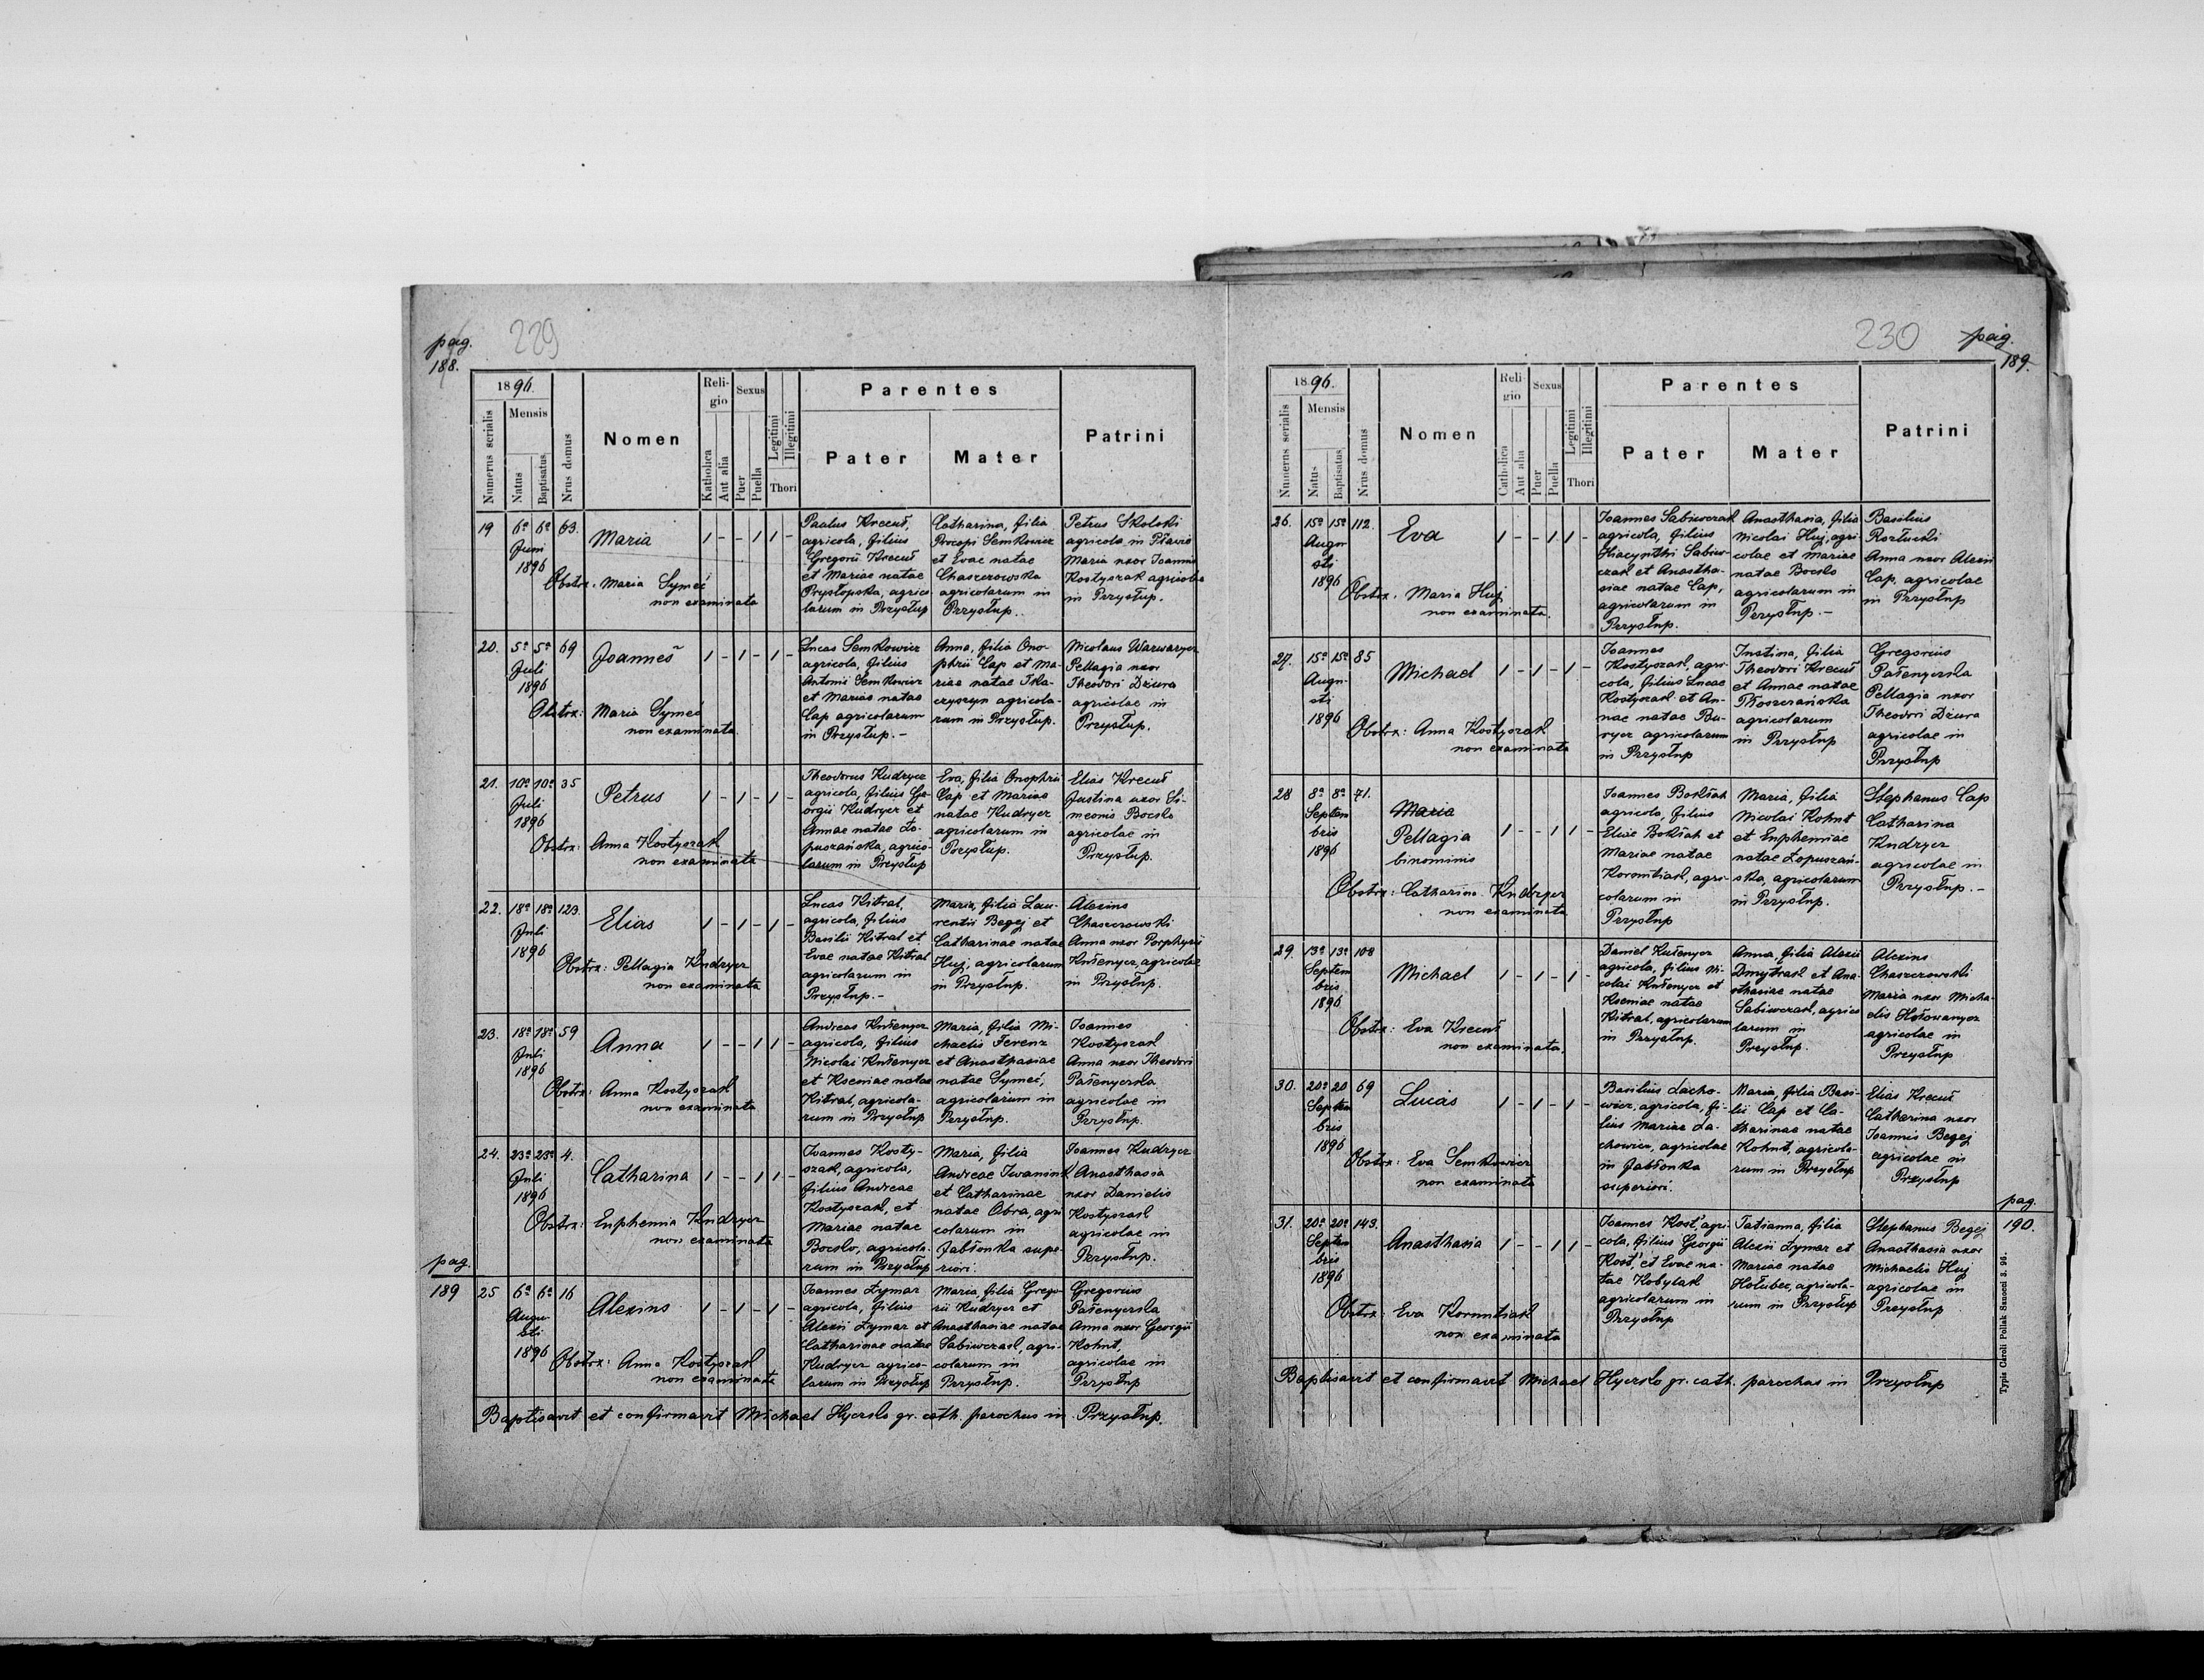 pag. 229
188.
1896.
Numerus serialis
Mensis
Natus
Baptisatus
Nrus domus
Nomen
Reli-
gio
Katholica
Aut alia
Sexus
Puer
Puella
Legitimi
Illegitimi
Thori
Parentes
Pater
Mater
Patrini
19 6a 6a 63.
Juni
1896
Maria
1 - - 1 1 -
Obstx. Maria Symeć
non examinata
Paulus Krecuł,
agricola, filius
Gregorii Krecuł
et Mariae natae
Przysłopska, agrico
larum in Przysłup
Catharina, filia
Procopi Semkowicz
et Evae natae
Chaszczowska
agricolarum in
Przysłup.
Petrus Skolski
agricola in Pławie
Maria uxor Joannis
Kostyszak agricolae
in Przysłup.
20. 5a 5a 69
Juli
1896
Joannes
1 - 1 - 1 -
Obstx: Maria Symeć
non examinata.
Lucas Semkowicz
agricola, filius
Antonii Semkowicz
et Mariae natae
Cap agricolarum
in Przysłup.-
Anna, filia Ono-
phrii Cap et Ma-
riae natae Tka-
czyszyn agricola-
rum in Przysłup.
Nicolaus Warwarycz
Pellagia uxor
Theodori Dziura
agricolae in
Przysłup.
21. 10a 10a 35
Juli
1896
Petrus
1 - 1 - 1 -
Obstx: Anna Kostyszak
non examinata
Theodorus Kudrycz
agricola, filius Ge-
orgii Kudrycz et
Annae natae Ło-
puszańska, agrico-
larum in Przysłup
Eva, filia Onophrii
Cap et Mariae
natae Kudrycz
agricolarum in
Przysłup.
Elias Krecuł
Justina uxor Si-
meonis Bocsko
agricolae in
Przysłup.
22. 18a 18a 123.
Juli
1896
Elias
1 - 1 - 1 -
Obstx: Pellagia Kudrycz
non examinata
Lucas Kitral,
agricola, filius
Basilii Kitral et
Evae natae Kitral
agricolarum in
Przysłup.-
Maria, filia Lau-
rentii Begej et
Catharinae natae
Huj, agricolarum
in Przysłup.
Alexius
Chaszczowski
Anna uxor Porphyrii
Kuřenycz, agricolae
in Przysłup.
23. 18a 18a 59
Juli
1896
Anna
1 - - 1 1 -
Obstx: Anna Kostyszak
non examinata
Andreas Kuřenycz
agricola, filius
Nicolai Kuřenycz
et Kseniae natae
Kitral, agricola-
rum in Przysłup
Maria, filia Mi-
chaelis Ferenz
et Anasthasiae
natae Symeć,
agricolarum in
Przysłup.
Joannes
Kostyszak
Anna uxor Theodori
Pařenyczka
agricolae in
Przysłup.
24. 23a 23a 4.
Juli
1896
Catharina
1 - - 1 1 -
Obstx: Euphemia Kudrycz
non examinata
Joannes Kosty-
szak, agricola,
filius Andreae
Kostyszak, et
Mariae natae
Bocsko, agricola-
rum in Przysłup
Maria, filia
Andreae Iwaniusk
et Catharinae
natae Obra, agri
colarum in
Jabłonka supe-
riori.
Joannes Kudrycz
Anasthasia
uxor Danielis
Kostyszak
agricolae in
Przysłup.
pag.
189
25 6a 6a 16
Augu-
sti
1896
Alexius
1 - 1 - 1 -
Obstx: Anna Kostyszak
non examinata
Joannes Łymar
agricola, filius
Alexii Łymar et
Catharinae natae
Kudrycz agrico-
larum in Przysłup
Maria, filia Grego-
rii Kudrycz et
Anasthasiae natae
Sabiwczak, agri-
colarum in
Przysłup.
Gregorius
Pařenyczka
Anna uxor Georgii
Kohut,
agricolae in
Przysłup
Baptisavit et confirmavit Michael Hycsko gr. cath. parochus in Przysłup.
230 pag.
189.
1896.
Numerus serialis
Mensis
Natus
Baptisatus
Nrus domus
Nomen
Reli-
gio
Catholica
Aut alia
Sexus
Puer
Puella
Legitimi
Illegitimii
Thori
Parentes
Pater
Mater
Patrini
26. 15a 15a 112.
Augu-
sti
1896
Eva
1 - - 1 1 -
Obstx. Maria Huj
non examinata.
Joannes Sabiwczak
agricola, filius
Hiacynthi Sabiw-
czak et Anastha-
siae natae Cap,
agricolarum in
Przysłup.
Anasthasia, filia
Nicolai Huj, agri-
colae et Mariae
natae Bocsko
agricolarum in
Przysłup.-
Basilius
Rozłucki
Anna uxor Alexii
Cap, agricolae
in Przysłup
27. 15a 15a 85
Augu-
sti
1896
Michael
1 - 1 - 1 -
Obstx: Anna Kostyszak
non examinata
Joannes
Kostyszak, agri-
cola, filius Lucae
Kostyszak et An-
nae natae Bu-
rycz agricolarum
in Przysłup
Justina, filia
Theodori Krecuł
et Annae natae
Płoszczańska
agricolarum
in Przysłup
Gregorius
Pařenyczka
Pellagia uxor
Theodori Dziura
agricolae in
Przysłup
28 8a 8a 71.
Septem
bris
1896
Maria
Pellagia
binominis
1 - - 1 1 -
Obstx: Catharina Kudrycz
non examinata
Joannes Bokšak
agricola, filius
Eliae Bokšak et
Mariae natae
Korontiak, agri-
colarum in
Przysłup
Maria, filia
Nicolai Kohut
et Euphemiae
natae Łopuszań-
ska, agricolarum
in Przysłup.
Stephanus Cap
Catharina
Kudrycz
agricolae in
Przysłup.-
29. 13a 13a 108
Septem
bris
1896
Michael
1 - 1 - 1 -
Obstx: Eva Krecuł
non examinata.
Daniel Kuřenycz
agricola, filius Ni-
colai Kuřenycz et
Kseniae natae
Kitral, agricolarum
in Przysłup.
Anna, filia Alexii
Dmytrak et Ana-
sthasiae natae
Sabiwczak, agrico
larum in
Przysłup.
Alexius
Chaszczowski
Maria uxor Micha-
elis Hołowanycz
agricolae in
Przysłup
30. 20a 20 69
Septem
bris
1896
Lucas
1 - 1 - 1 -
Obstx: Eva Semkowicz
non examinata
Basilius Lacho-
wicz, agricola, fi-
lius Mariae La-
chowicz, agricolae
in Jabłonka
superiori.
Maria, filia Basi-
lii Cap et Ca-
tharinae natae
Kohut, agricola-
rum in Przysłup
Elias Krecuł
Catharina uxor
Joannis Begej
agricolae in
Przysłup
pag.
190.
31. 20a 20a 143.
Septem
bris
1896
Anasthasia
1 - - 1 1 -
Obstx: Eva Korontiak
non examinata
Joannes Kost', agri-
cola, filius Georgii
Kost', et Evae na-
tae Kobylak
agricolarum in
Przysłup
Tatianna, filia
Alexii Łymar et
Mariae natae
Hołubec, agricola-
rum in Przysłup
Stephanus Begej
Anasthasia uxor
Michaelis Huj
agricolae in
Przysłup
Baptisavit et confirmavit Michael Hycsko gr. cath. parochus in Przysłup
Typis Caroli Pollak Sanoci 3. 96.